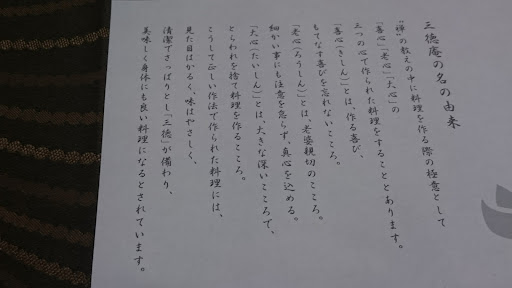 三徳庵の名の由来
“禅”の教えの中に料理を作る際の極意として
「喜心」「老心」「大心」の
三つの心で作られた料理をすることとあります。
「喜心(きしん)」とは、作る喜び、
もてなす喜びを忘れないこころ。
「老心(ろうしん)」とは、老婆親切のこころ。
細かい事にも注意を怠らず、真心を込める。
「大心(たいしん)」とは、大きな深いこころで、
とらわれを捨て料理を作るこころ。
こうして正しい作法で作られた料理には、
見た目はかるく、味はやさしく、
清潔でさっぱりとし「三徳」が備わり、
美味しく身体にも良い料理になるとされています。